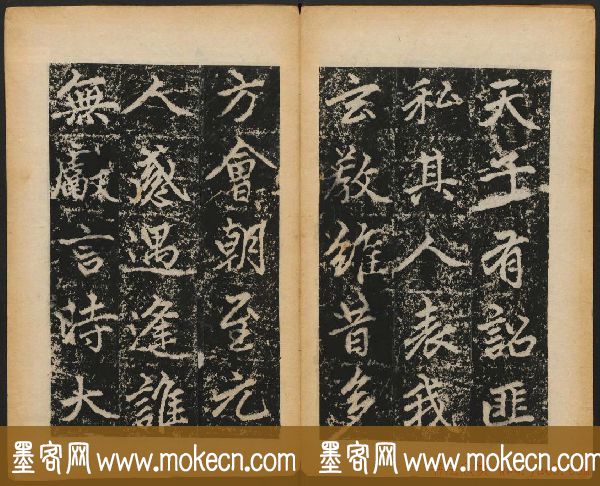 天子有詔匪
私其人表我
玄教雖昔多
方會朝至元
人感遇逢誰
無獻言時大
墨客网 www.mokecn.com 墨客网 www.mokecn.com